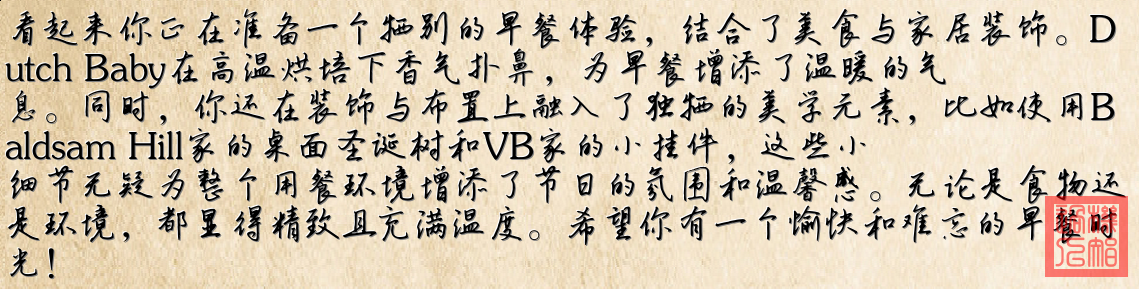 看起来你正在准备一个特别的早餐体验，结合了美食与家居装饰。D
utch Baby在高温烘培下香气扑鼻，为早餐增添了温暖的气
息。同时，你还在装饰与布置上融入了独特的美学元素，比如使用B
aldsam Hill家的桌面圣诞树和VB家的小挂件，这些小
细节无疑为整个用餐环境增添了节日的氛围和温馨感。无论是食物还
是环境，都显得精致且充满温度。希望你有一个愉快和难忘的早餐时
光！